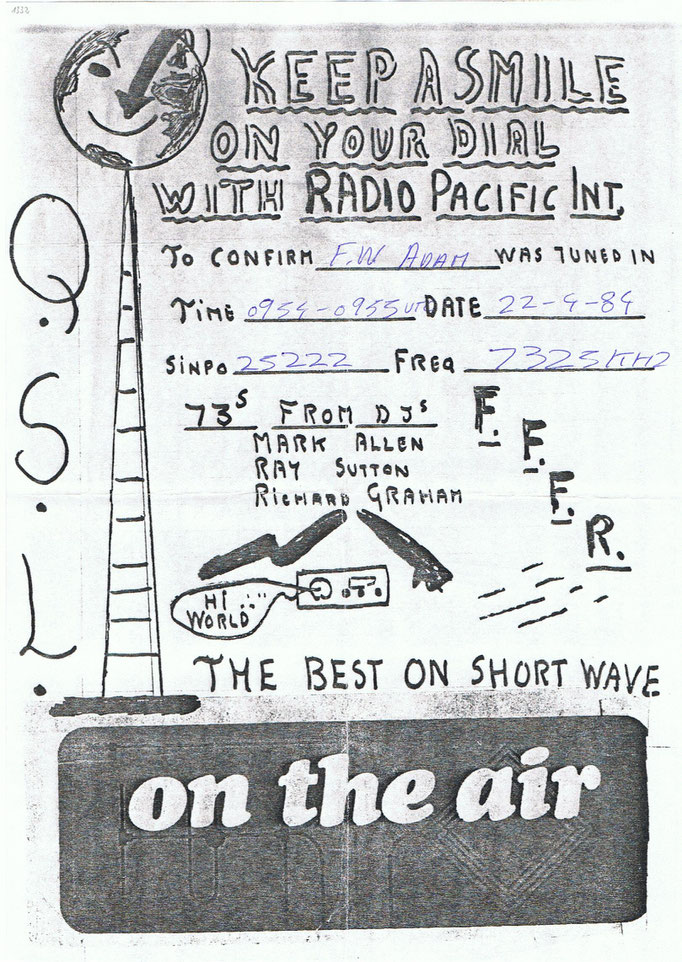 1332
KEEP A SMILE
ON YOUR DIAL
WITH RADIO PACIFIC INT.
TO CONFIRM F.W ADAM WAS TUNED IN
TIME 0954-0955 UTC DATE 22-4-84
SINPO 25222 FREQ 7323 KHZ
73S FROM DJS
MARK ALLEN
RAY SUTTON
RICHARD GRAHAM
F.
F.
F.
R.
Q.
S.
L.
HI
WORLD
THE BEST ON SHORT WAVE
on the air